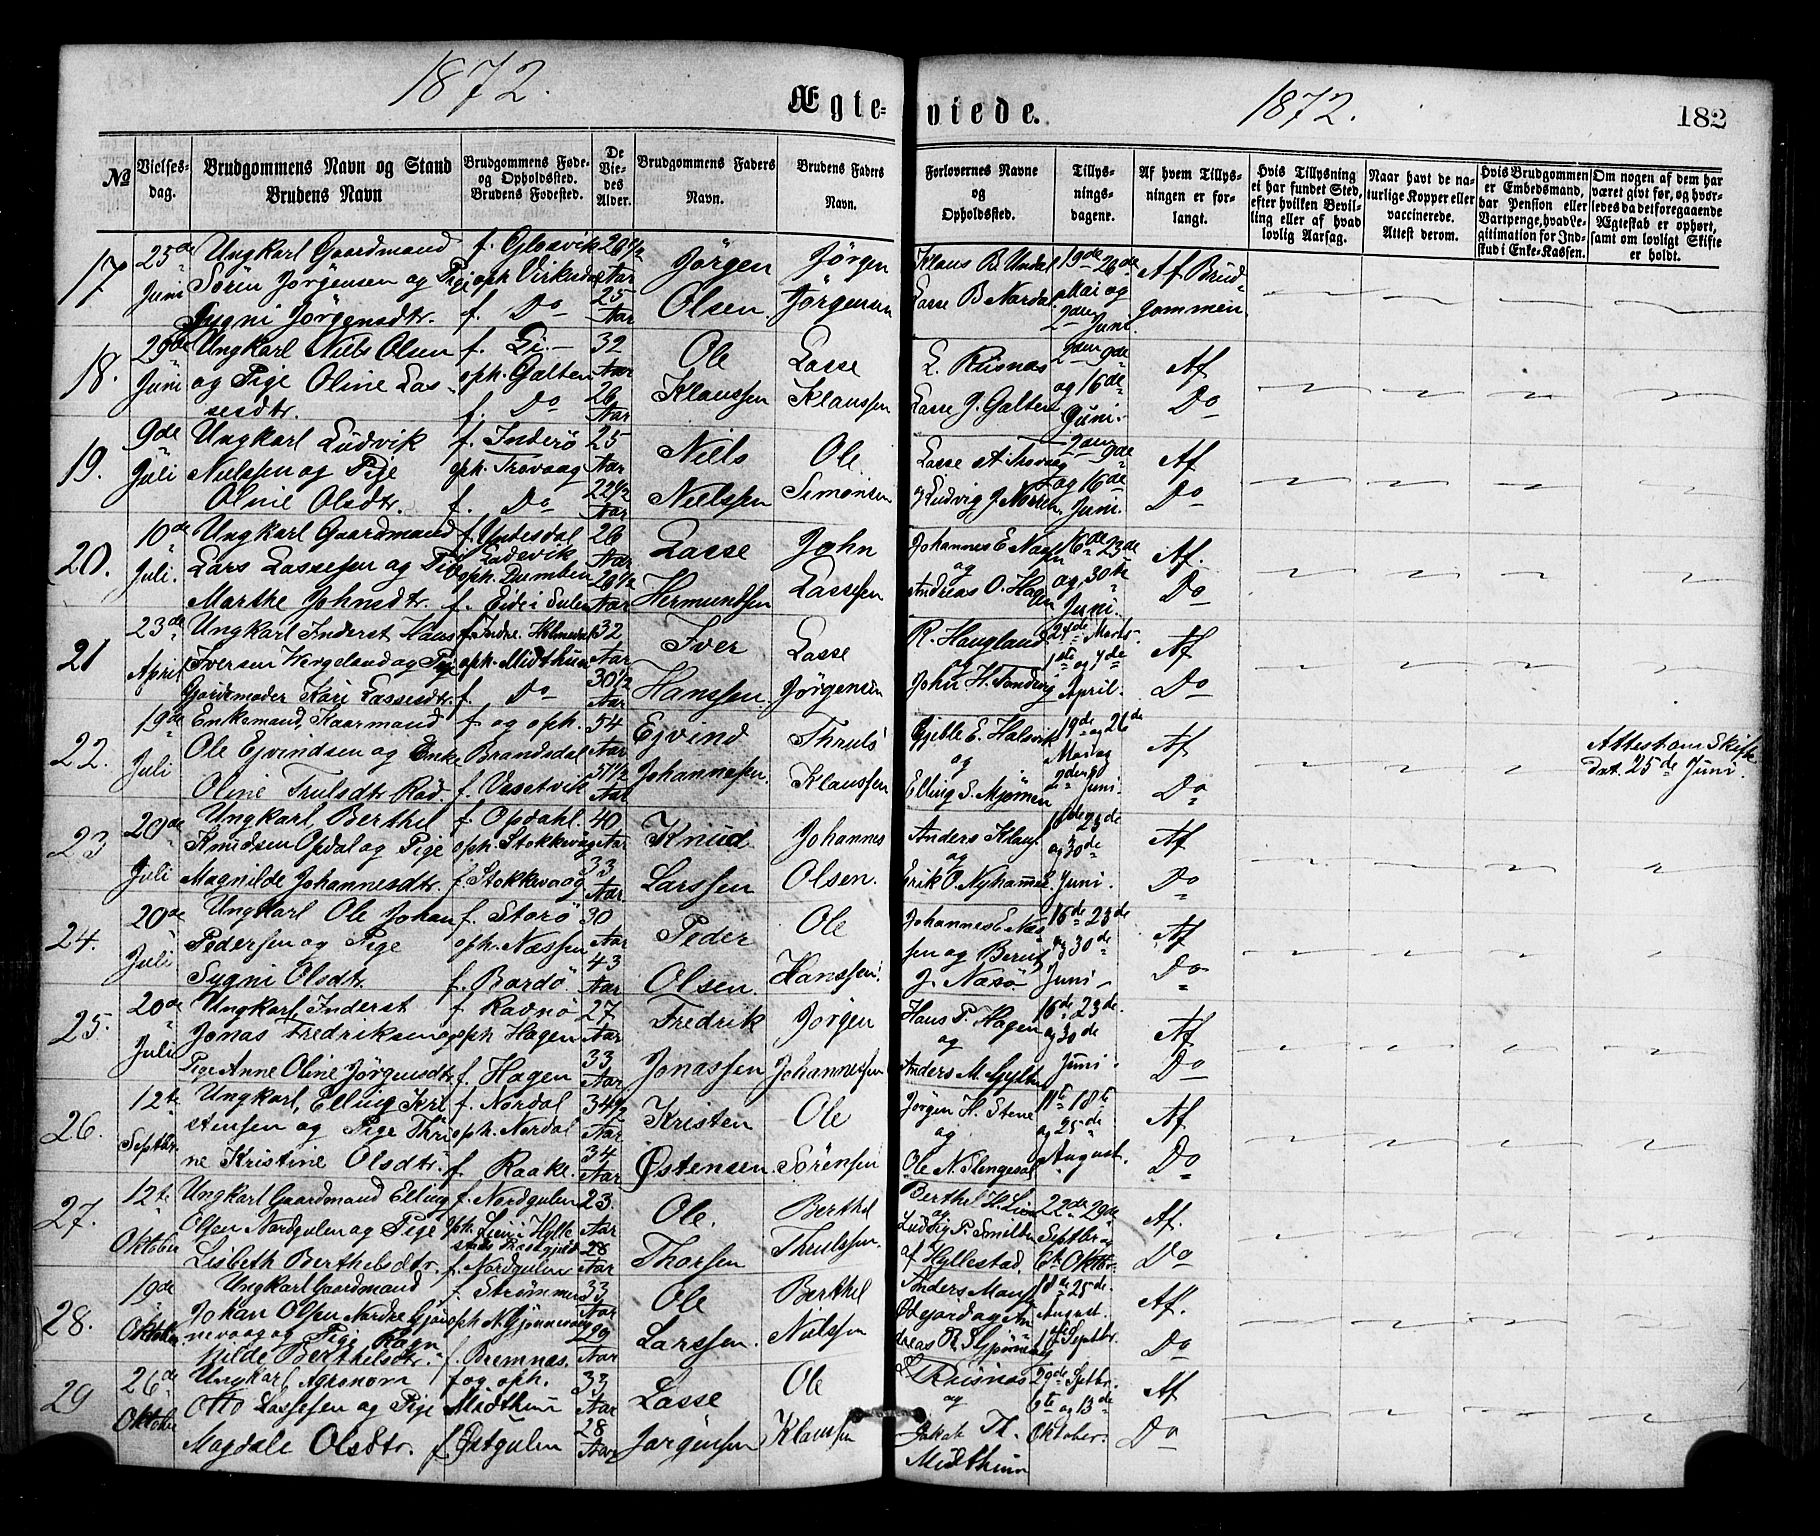 1872.
Ægte-
viede.
1872.
182
No
Vielses-
dag.
Brudgommens Navn og Stand
Brudens Navn
Brudgommens Føde-
og Opholdssted.
Brudens Fødested.
De
Vie-
des
Alder.
Brudgommens Faders
Navn.
Brudens Faders
Navn.
Forlovernes Navne
og
Opholdssted.
Tillys-
nings-
dagene.
Af hvem Tillys-
ningen er for-
langt.
Hvis Tillysning
ei har fundet Sted,
efter hvilken Bevil-
ling eller af hvad
lovlig Aarsag.
Naar havt de na-
turlige Kopper eller
vaccinerede.
Attest derom.
Hvis Brudgommen
er Embedsmand,
har Pension eller
Vartpenge, hvad Le-
gitimation for Ind-
skud i Enke-Kassen.
Om nogen af dem har
været gift før, og hvor-
ledes da det foregaaende
Ægteskab er ophørt,
samt om lovligt Skifte
er holdt.
17
25de Juni
Ungkarl Gaardmand
Sören Jörgensen og Pige
Sygni Jörgensdtr.
f. Glosvik
oph
f. Do
Aar
25
Aar
Jörgen
Olsen
Jörgen
Jörgensen
Klaus B. Undal
Lasse B Nordal
19de 26de
Mai og
2den Juni.
Af Brud-
gommen.
18.
29de Juni
Ungkarl Niels Olsen
og Pige Oline Las-
sesdtr.
f. Li.
oph. Galten
f. Do
32
Aar
26
Aar
Ole
Klaussen
Lasse
Klaussen
L. Risnæs
Lasse J. Galten
2den 9de
og 16de
Juni.
Af
Do
19.
9de Juli
Ungkarl Ludvik
Nielssen og Pige
Oline Olsdtr.
f. Inderö
oph. Trovaag
f. Do
25
Aar
22 1/2
Aar
Niels
Nielssen
Ole
Simonsen
Lasse A. Trovaag
Ludvig J.
2den 9de
og 16de
Juni.
Af
Do
20.
10de Juli.
Ungkarl Gaardmand
Lars Lassesen og Pige
Marthe Johnsdtr.
f. Yndesdal
oph.
f. Eide i Sulen
26
Aar
29 1/2
Aar
Lasse
Hermundsen
John
Lassesen
Johannes E.
og
Andreas O. Hagen
16de 23de
og 30te
Juni.
Af
Do
21
23de April
Ungkarl Inderst Hans
Iversen Wergeland og Pige
Gjordemoder Kari Lassesdtr.
f. Indre Holmedal
oph. Midthun
f. Do
32
Aar
30 1/2
Aar
Iver
Hanssen
Lasse
Jørgensen
R. Haugland
og
John H.
24de Marts
1ste og 7de
April.
Af
Do
22.
19de Juli
Enkemand, Kaarmand
Ole Ejvindsen og Enke
Oline Trulsdtr Rød.
f. og oph.
Brandsdal
f.
54
Aar
51 1/2
Aar
Ejvind
Johannesen.
Thruls
Klaussen
Gjible E. Halsvik
og
Elling S. Mjömen
19de og 26de
Mai og
2den Juni.
Af
Do
Attest om Skifte
dat. 25de Juni.
23
20de Juli
Ungkarl Berthel
Knudsen Opdal og Pige
Magnilde Johannesdtr.
f. Opdahl.
oph. Stokkevaag
f. Stokkevaag
40
Aar
33
Aar
Knud
Larssen
Johannes
Olsen.
Anders Klaus
og
Erik O. Nyhammer
16de 23de
og 30de
Juni.
Af
Do
24.
20de Juli
Ungkarl Ole Johan
Pedersen og Pige
Sygni Olsdtr.
f. Storö
oph. Næssen
f. Bardö.
30
Aar
43
Aar
Peder
Olsen.
Ole
Hanssen
Johannes E. Næs-
sen og Bernt
J. Næsø
16de 23de
og 30de
Juni
Af
Do
25.
20de Juli
Ungkarl, Inderst
Jonas Fredriksen og
Pige Anne Oline Jörgensdtr.
f. Ravnö
oph Hagen
f. Hagen
27
Aar
33
Aar
Fredrik
Jonassen
Jörgen
Johannessen
Hans P. Hagen
og
Anders M.
16de 23de
og 30de
Juni.
Af
Do
26.
12te Septbr.
Ungkarl, Elling Kri
stensen og Pige Thri
ne Kristine Olsdtr.
f. Nordal
oph. Nordal
f. Raake.
34 1/2
Aar
34
Aar
Kristen
Østensen.
Ole
Sörensen
Jörgen H. Stene
og
Ole N. Slengesol
11te 18te
og 25de
August.
Af
Do
27.
12te Oktober
Ungkarl Gaardmand Elling
Olsen Nordgulen og Pige
Lisbeth Berthelsdtr.
f. Nordgulen
oph. Lien i Hylle
stads Præstegjeld
f. Nordgulen
23.
Aar
28
Aar
Ole.
Thorsen
Berthel
Thrulssen.
Berthel H. Lien
og
Ludvig P.
af Hyllestad.
22de 29de
Septbr og
6te Oktbr.
Af.
Do
28.
19de Oktober
Ungkarl Gaardmand
Johan Olsen Nordre Gjön
nevaag og Pige Ragn
hilde Berthelsdtr.
f. Strömmen
oph N. Gjönnevaag
f. Bremnæs.
33
Aar
29
Aar
Ole
Larssen.
Berthel
Nielssen
Anders
18de 25de
August.
1ste Septbr.
Af.
Do
29
26de Oktober
Ungkarl, Agronom
Otto Lassesen og Pige
Magdale Olsdtr.
f og oph.
Midthun
f. Østgulen
33
Aar
28
Aar
Lasse
Jørgensen
Ole
Klaussen
L Risnæs
og
Jakob Th.
Midthun
29de Septbr.
6te og 13de
Oktober.
Af
Do